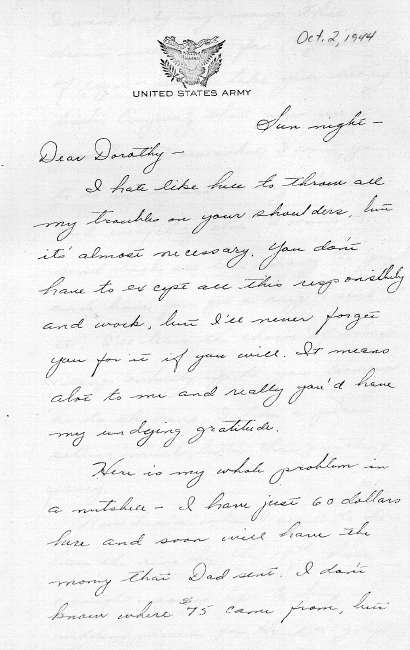 Oct. 2, 1944
UNITED STATES ARMY
Sun night -
Dear Dorothy -
I hate like hell to throw all
my troubles on your shoulders, but
it's almost necessary. You don't
have to except all this responsibility
and work, but I'll never forget
you for it if you will. It means
alot to me and really you'd have
my undying gratitude.
Here is my whole problem in
a nutshell - I have just 60 dollars
here and soon will have the
money that Dad sent. I don't
know where $75 came from, but